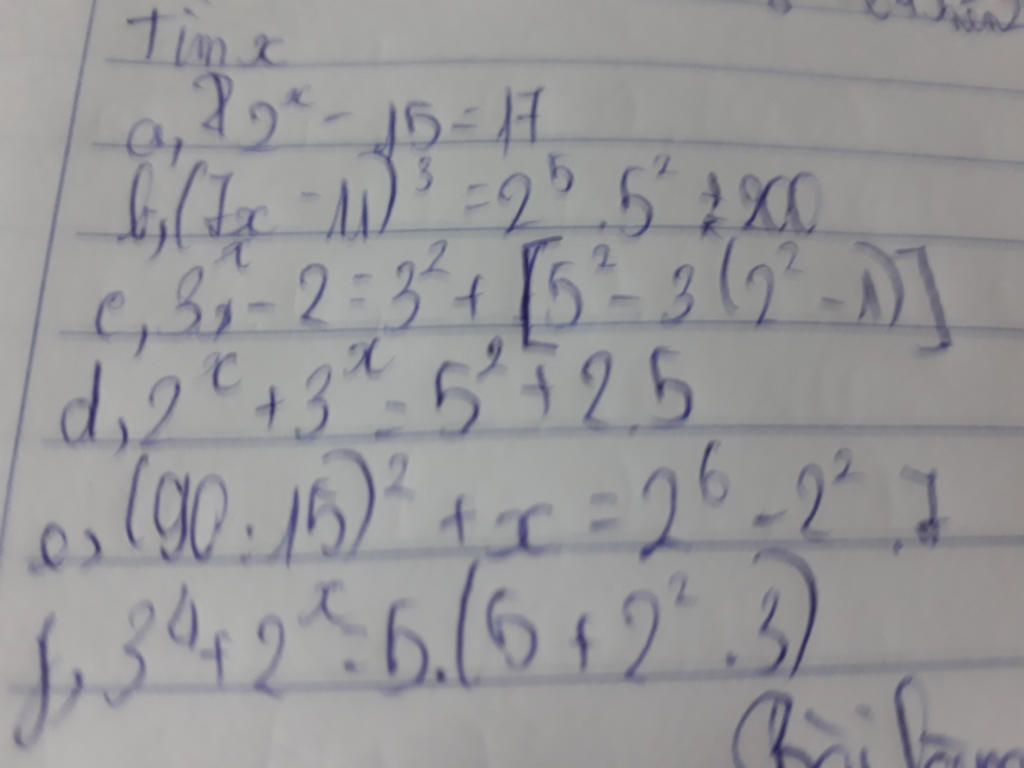 Tìm x
a, 2ˣ - 15 = 17
b, (7x - 11)³ = 2⁵ . 5² + 200
c, 3ˣ - 2 = 3² + [5² - 3 (2² - 1)]
d, 2ˣ + 3ˣ = 5² + 2.5
e, (90 : 15)² + x = 2⁶ - 2² . 7
f, 3⁴ + 2ˣ = 5. (5 + 2² . 3)
Bài